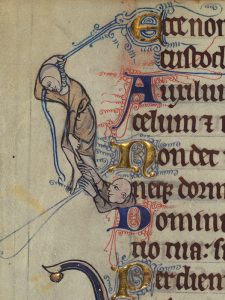 Ecce non
custodi
Auxilium
celum ⁊
Non det
neqꝫ dorm
Dominu
tio tua: s
Per diem